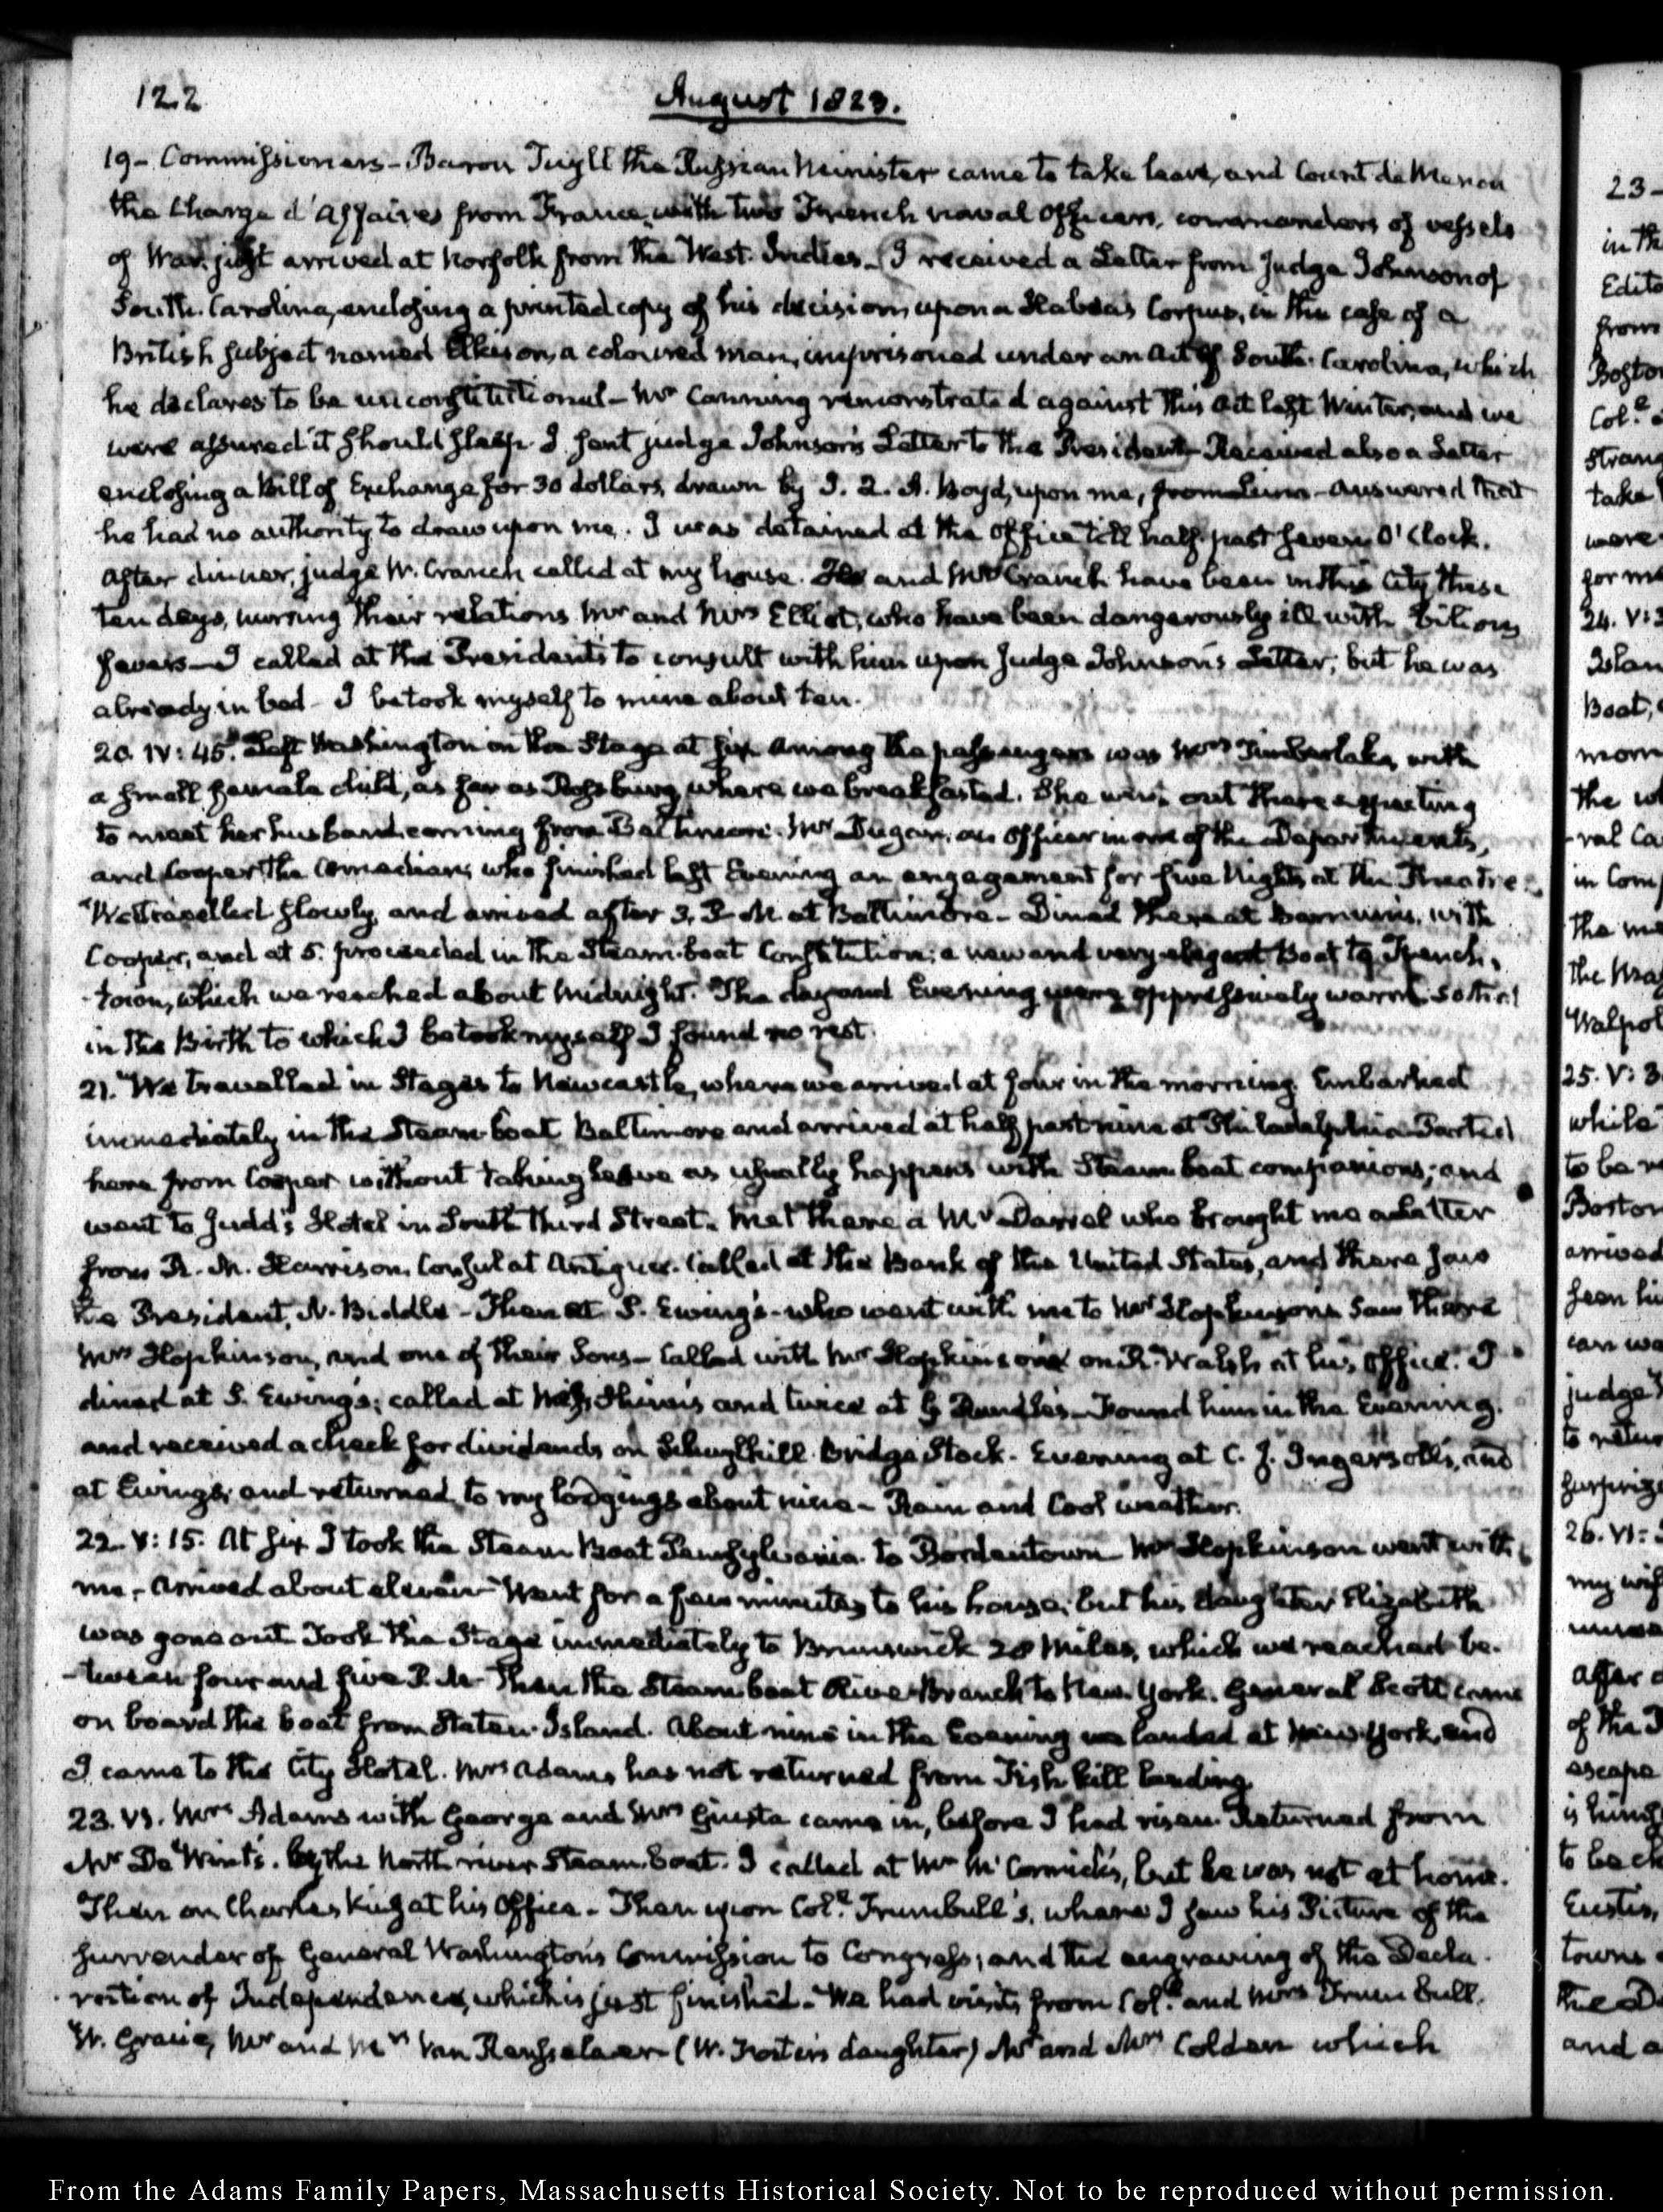 122
August 1823.
19– Commissioners– Baron Tuyll the Russian Minister came to take leave, and Count de Menou
the Charge d'Affaires from France, with two French naval officers, commanders of vessels
of War, just arrived at Norfolk from the West-Indies– I received a Letter from Judge Johnson of
South-Carolina, enclosing a printed copy of his decision, upon a Habeas Corpus, in the case of a
British subject named Elkison, a coloured man, imprisoned under an Act of South-Carolina, which
he declares to be unconstitutional– Mr Canning remonstrated against this Act last Winter, and we
were assured it should sleep. I sent judge Johnson's Letter to the President– Received also a Letter
enclosing a Bill of Exchange for 30 dollars, drawn by J. Q. A. Boyd, upon me, from – Answered that
he had no authority to draw upon me. I was detained at the Office till half-past seven O'Clock.
After dinner, judge W. Cranch called at my house. He and Mrs Cranch have been in this City these
ten days, nursing their relations Mr and Mrs Elliot, who have been dangerously ill with bilious
fevers– I called at the President's to consult with him upon Judge Johnson's Letter; but he was
already in bed– I betook myself to mine about ten.
20. IV:45. Left Washington in the Stage at six. Among the passengers was Mrs Timberlake, with
a small female child, as far as Rossburg, where we breakfasted. She was out there expecting
to meet her husband coming from Baltimore. Mr Dugan, an Officer in one of the Departments,
and Cooper the Comedian, who finished last Evening an engagement for five Nights at the Theatre.
We travelled slowly, and arrived after 3. P.M. at Baltimore– Dined there at Barnum's, with
Cooper, and at 5. proceeded in the Steam-boat Constitution; a new and very elegant Boat to French-
-town, which we reached about Midnight. The day and Evening were oppressively warm so that
in the Birth to which I betook myself I found no rest.
21. We travelled in Stages to Newcastle, where we arrived at four in the morning. Embarked
immediately in the Steam-boat Baltimore and arrived at half past nine at Philadelphia. Parted
here from Cooper without taking leave as usually happens with Steam-boat companions; and
went to Judd's Hotel in South Third Street. Met there a Mr Darrel who brought me a Letter
from R. M. Harrison, Consul at Antigua. Called at the Bank of the United States, and there saw
the President, N. Biddle– Then at S. Ewing's– who went with me to Mr Hopkinson's. Saw there
Mrs Hopkinson, and one of their Sons– Called with Mr Hopkinson on R. Walsh at his Office. I
dined at S. Ewing's; called at and twice at G. Rundle's– Found him in the Evening.
and received a check for dividends on Schuylkill Bridge Stock. Evening at C. J. Ingersoll's, and
at Ewing's; and returned to my lodgings about nine– Rain and Cool weather.
22. V:15. At six I took the Steam Boat Pennsylvania to Bordentown– Mr Hopkinson went with
me. Arrived about eleven– Went for a few minutes to his house; but his daughter Elizabeth
was gone out. Took the Stage immediately to Brunswick 28 Miles, which we reached be-
-tween four and five P.M– Then the Steam-boat Olive Branch to New-York. General Scott came
on board the boat from Staten-Island. About nine in the Evening we landed at New-York, and
I came to the City Hotel. Mrs Adams has not returned from Fish kill landing.
23. VI. Mrs Adams with George and Mrs Giusta came in, before I had risen. Returned from
Mr De Wint's. by the North river Steam-boat. I called at Mr McCormick's, but he was not at home.
Then on Charles King at his Office– Then upon Col.l Trumbull's, where I saw his Picture of the
surrender of General Washington's Commission to Congress; and the engraving of the Decla-
-ration of Independence, which is just finished.– We had visits from Col.l and Mrs Trumbull.
W. Gracie, Mr and Mrs Van Rensselaer (W. Foster's daughter) Mr and Mrs Colden which
From the Adams Family Papers, Massachusetts Historical Society. Not to be reproduced without permission.